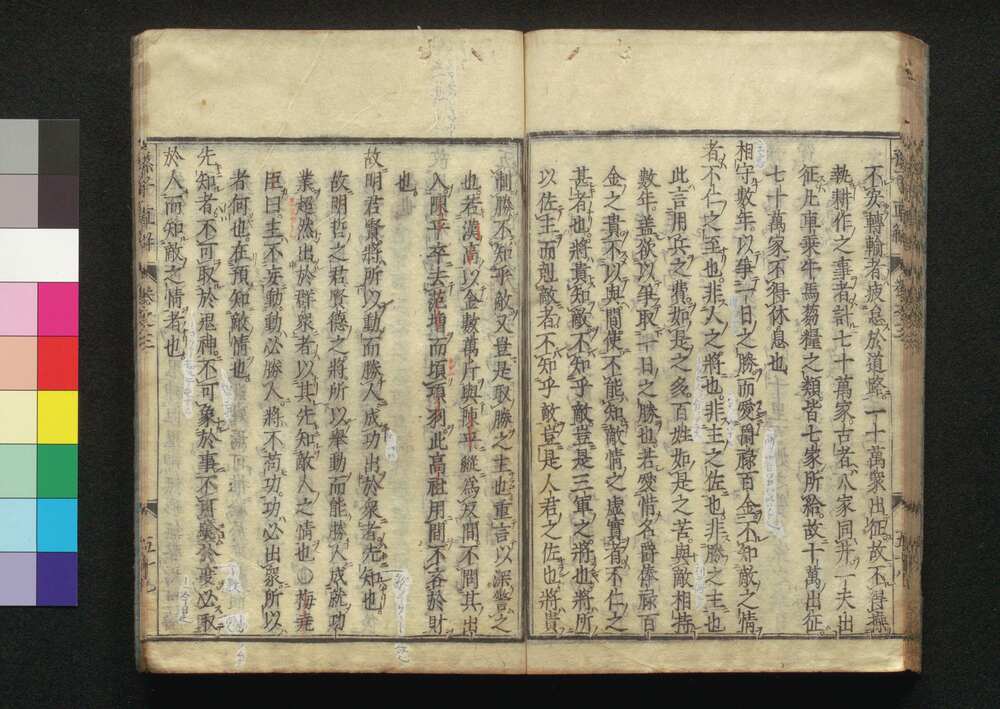 不安轉輸者疲怠於道路一十萬衆出征故不得操
執耕作之事者計七十萬家古者八家同井一夫出
征凡車乘牛馬芻糧之類皆七家所給故十萬出征
七十萬家不得休息也
相守數年以爭一日之勝而愛爵祿百金不知敵之情
者不仁之至也非人之將也非主之佐也非勝之主也
此言用兵之費如是之多百姓如是之苦與敵相持
數年盖欲以爭取一日之勝也若愛惜名爵俸祿百
金之貴不以與間使不能知敵情之虛實者不仁之
甚者也將貴知敵不知乎敵豈是三軍之將也將所
以佐主而剋敵者不知乎敵豈是人君之佐也將貴
制勝不知乎敵又豈是取勝之主也重言以深咎之
也若漢高以金數萬斤與陳平縱爲反間不問其出
入陳平卒去范增而項羽此高祖用間不吝於財
也
故明君賢將所以動而勝人成功出於衆者先知也
故明哲之君賢德之將所以舉動而能勝人成就功
業超然出於群衆者以其先知敵人之情也○梅堯
臣曰主不妄動動必勝人將不苟功功必出衆所以
者何也在預知敵情也
先知者不可取於鬼神不可象於事不可驗於度必取
於人而知敵之情者也
孫子直解 卷之三 五十九